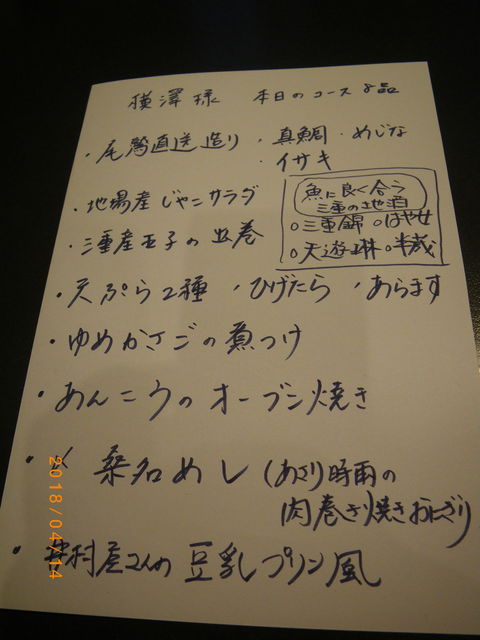 横澤様 本日のコース 8品
・尾鷲直送造り ・真鯛 ・めじな
・イサキ
・地場産じゃこサラダ
魚に良く合う
三重の地酒
○三重錦 ○はや女
○天遊琳 ○半蔵
・三重産玉子の出巻
・天ぷら2種 ・ひげたら ・あらます
・ゆめかさごの煮つけ
・あんこうのオーブン焼き
・〆 桑名めし (あさり時雨の
肉巻き焼きおにぎり
・井村屋さんの豆乳プリン風
2018/04/14